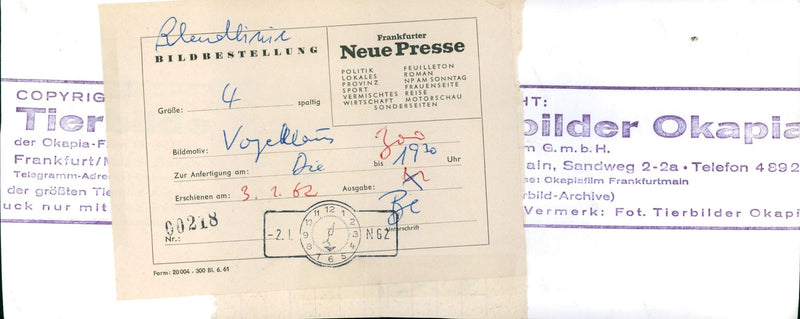 BILDBESTELLUNG
Frankfurter
Neue Presse
POLITIK FEUILLETON
LOKALES ROMAN
PROVINZ NP AM SONNTAG
SPORT FRAUENSEITE
VERMISCHTES REISE
WIRTSCHAFT MOTORSCHAU
SONDERSEITEN
Größe: 4 spaltig
Bildmotiv:
Zur Anfertigung am: Die bis 19 30 Uhr
Erschienen am: 3. 1. 62 Ausgabe:
00218
Nr.:
-2.1. NGZ
12 1 2 3 4 5 6 7 8 9 10 11
Unterschrift
Form: 20004 · 300 Bl. 6. 61
COPYRIG
Tier
der Okapia-F
Frankfurt/M
Telegramm-Adre
der größten Tie
uck nur mit
HT:
bilder Okapia
m G.m.b.H.
ain, Sandweg 2-2a · Telefon 4892
se: Okapiafilm Frankfurtmain
rbild-Archive)
Vermerk: Fot. Tierbilder Okapi